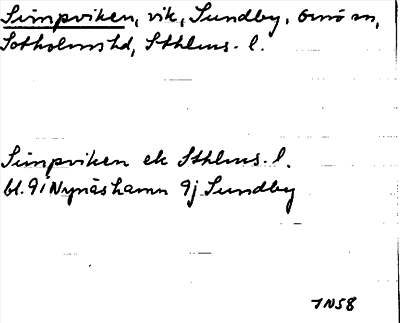 Simpviken, vik, Sundby, Ornö sn,
Sotholms hd, Sthlms. l.
Simpviken ek Sthlms. l.
bl. 9i Nynäshamn 9j Sundby
JNS8